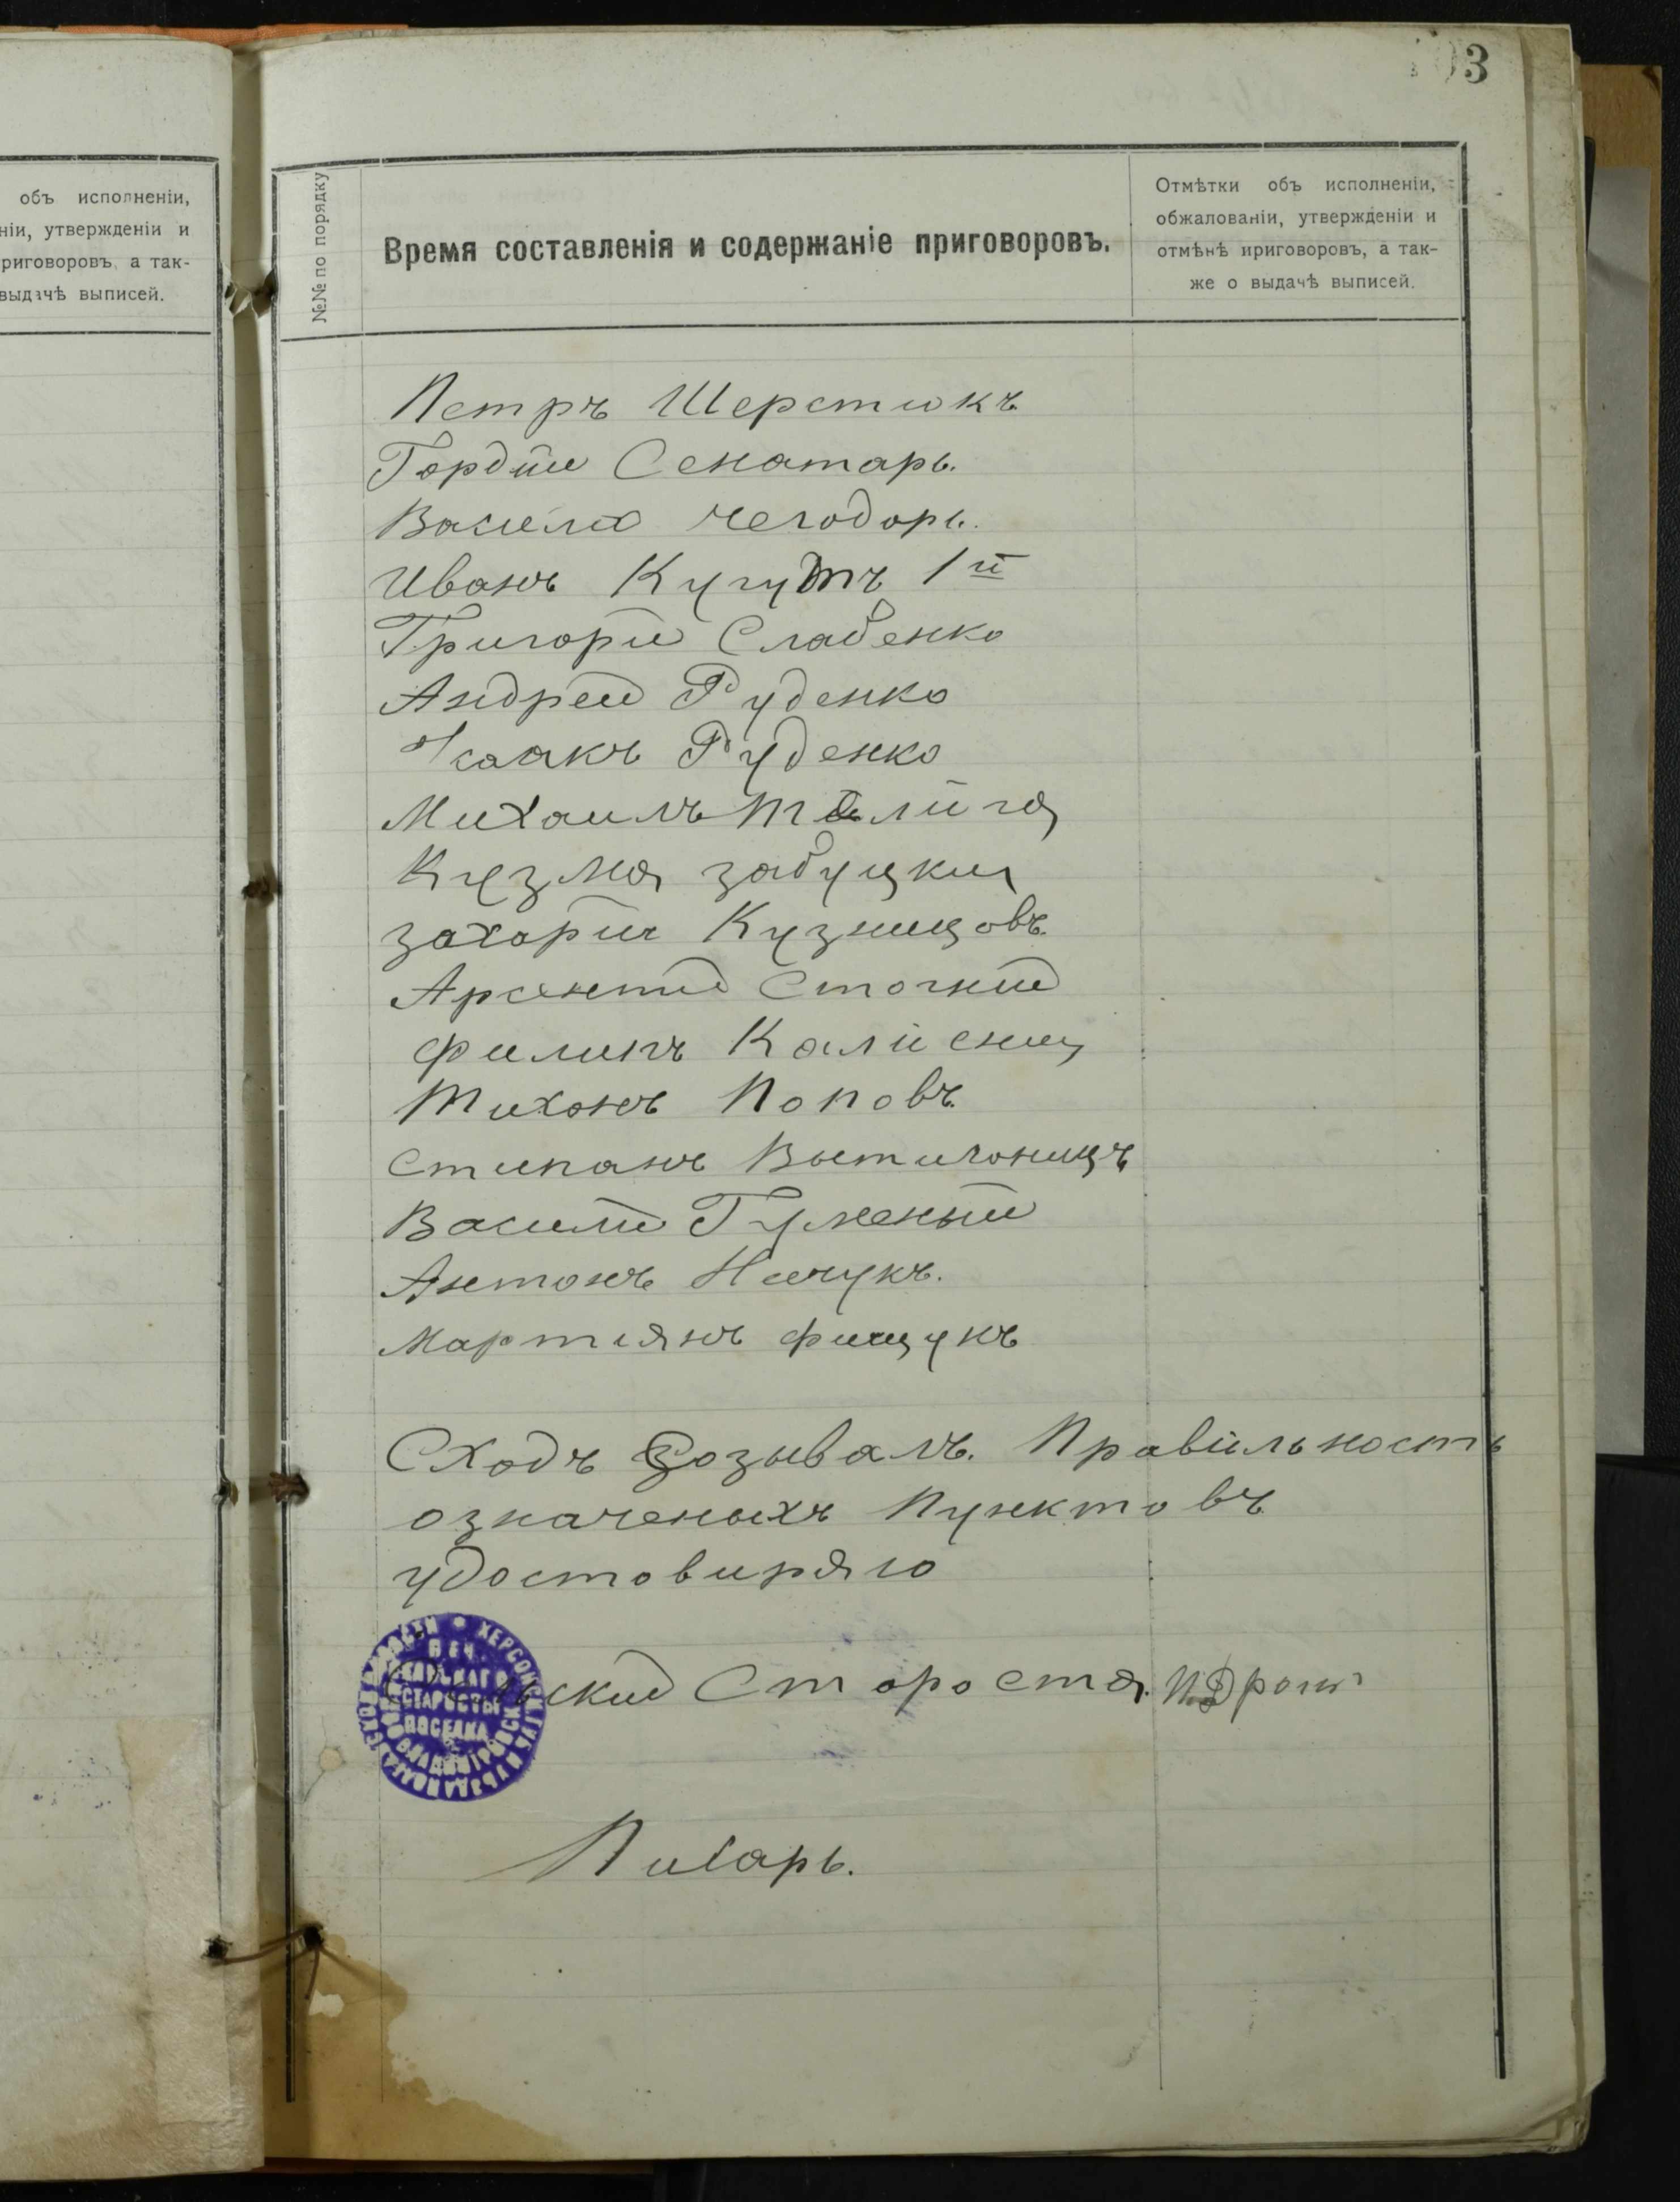 03
объ исполненіи,
ніи, утвержденіи и
риговоровъ, а так-
выдачѣ выписей.
№№ по порядку
Время составленія и содержаніе приговоровъ.
Отмѣтки объ исполненіи,
обжалованіи, утвержденіи и
отмѣнѣ приговоровъ, а так-
же о выдачѣ выписей.
Петръ Шерстюкъ
Гордій Сенатарь.
Василій чегодарь.
Иванъ Кугутъ 1й
Григорій Слабенко
Андрей Руденко
Исаакъ Руденко
Михаилъ Теліга
Кузма забуцкий
захарій Кузницовъ.
Арсентий Сточний
Филипъ
Тихонъ Поповъ.
Степанъ
Василий Гуменый
Антонъ Ничукъ.
Мартіянъ фищукъ
Сходъ созывалъ. Правильность
означеныхъ Пунктовъ
удостовиряю
Сельский Староста.
ПЕЧ.
СЕЛЬСКАГО
СТАРОСТЫ
ПОСЕЛКА
Писарь.